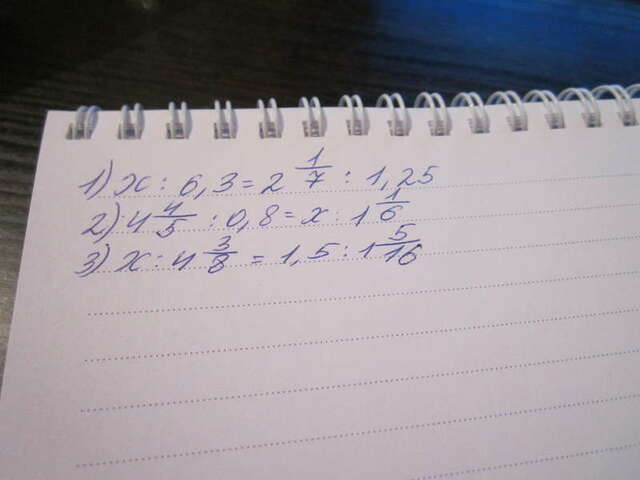 1) x : 6,3 = 2 1/7 : 1,25
2) 4 4/5 : 0,8 = x : 1 1/6
3) x : 4 3/8 = 1,5 : 1 5/16